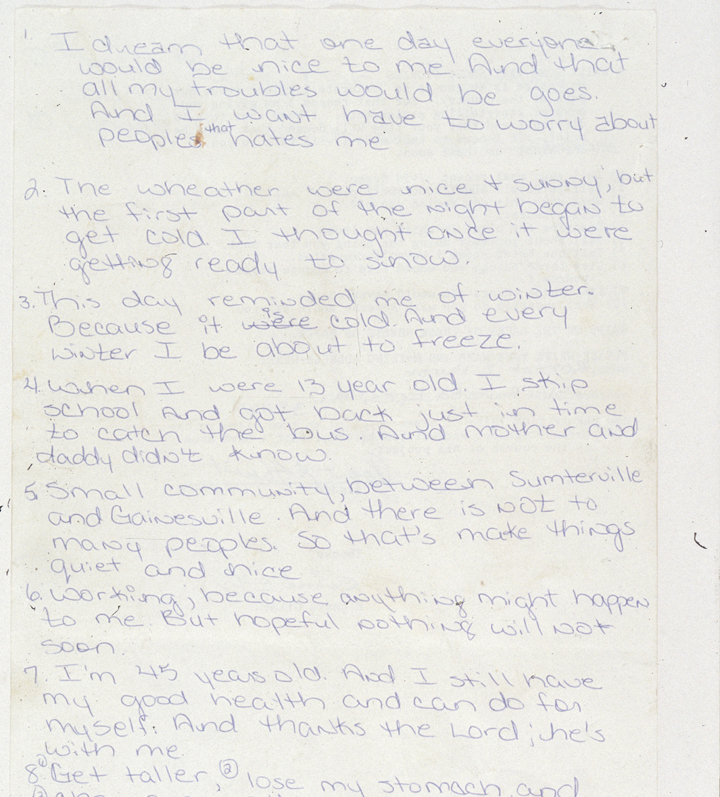 1. I dream that one day everyone
would be nice to me. And that
all my troubles would be goes.
And I want have to worry about
peoples that hates me
2. The wheather were nice + sunny, but
the first part of the night began to
get cold. I thought once it were
getting ready to snow.
3. This day reminded me of winter.
Because it were is cold. And every
winter I be about to freeze.
4. When I were 13 year old. I skip
school And got back just in time
to catch the bus. And mother and
daddy didn't know.
5. Small community, between Sumterville
and Gainesville. And there is not to
many peoples. So that's make things
quiet and nice
6. Working, because anything might happen
to me. But hopeful nothing will not
soon.
7. I'm 45 years old. And I still have
my good health and can do for
myself. And thanks the Lord; he's
with me.
8. ① Get taller, ② lose my stomach and